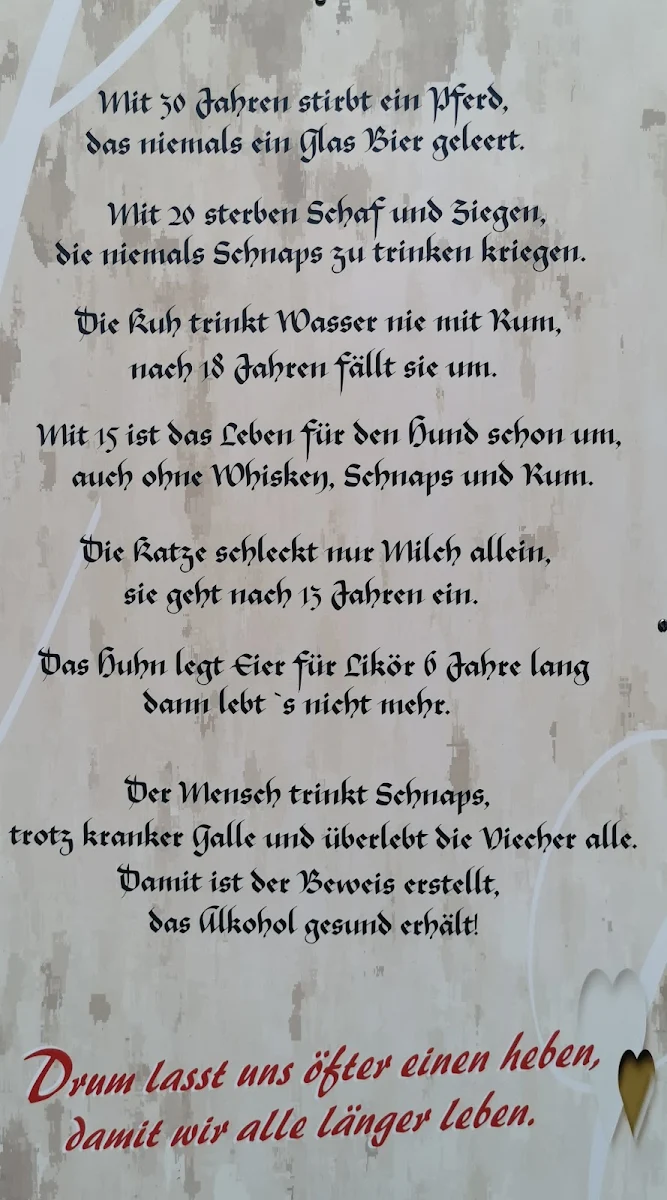 Mit 30 Jahren stirbt ein Pferd,
das niemals ein Glas Bier geleert.
Mit 20 sterben Schaf und Ziegen,
die niemals Schnaps zu trinken kriegen.
Die Kuh trinkt Wasser nie mit Rum,
nach 18 Jahren fällt sie um.
Mit 15 ist das Leben für den Hund schon um,
auch ohne Whiskey, Schnaps und Rum.
Die Katze schleckt nur Milch allein,
sie geht nach 13 Jahren ein.
Das Huhn legt Eier für Likör 6 Jahre lang
dann lebt `s nicht mehr.
Der Mensch trinkt Schnaps,
trotz kranker Galle und überlebt die Viecher alle.
Damit ist der Beweis erstellt,
das Alkohol gesund erhält!
Drum lasst uns öfter einen heben,
damit wir alle länger leben.